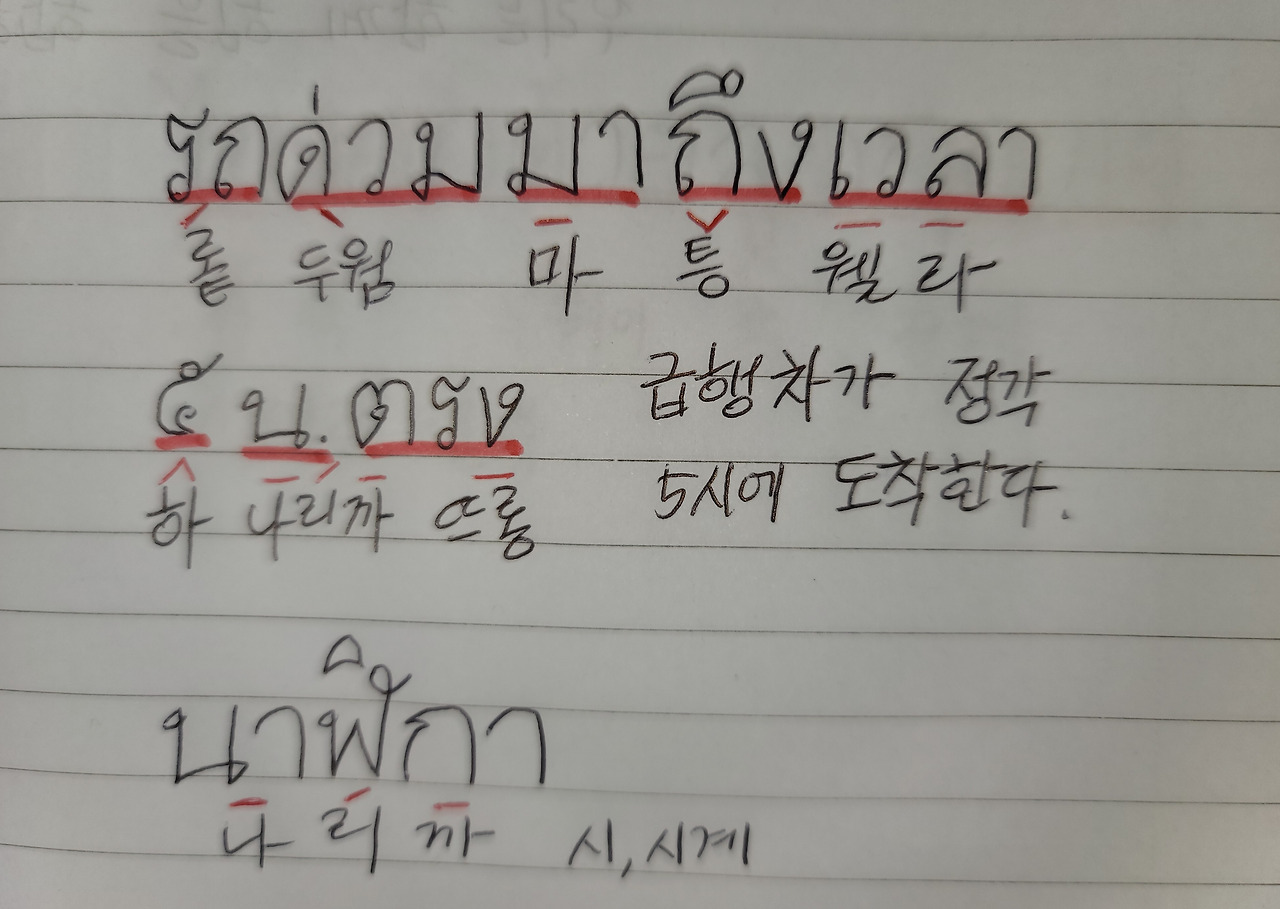 รถด่วมมาถึงเวลา
롵 두웜 마 틍 웰 라
๕ น. ตรง 급행차가 정각
하 나리까 뜨롱 5시에 도착한다.
นาฬิกา
나 리 까 시, 시계